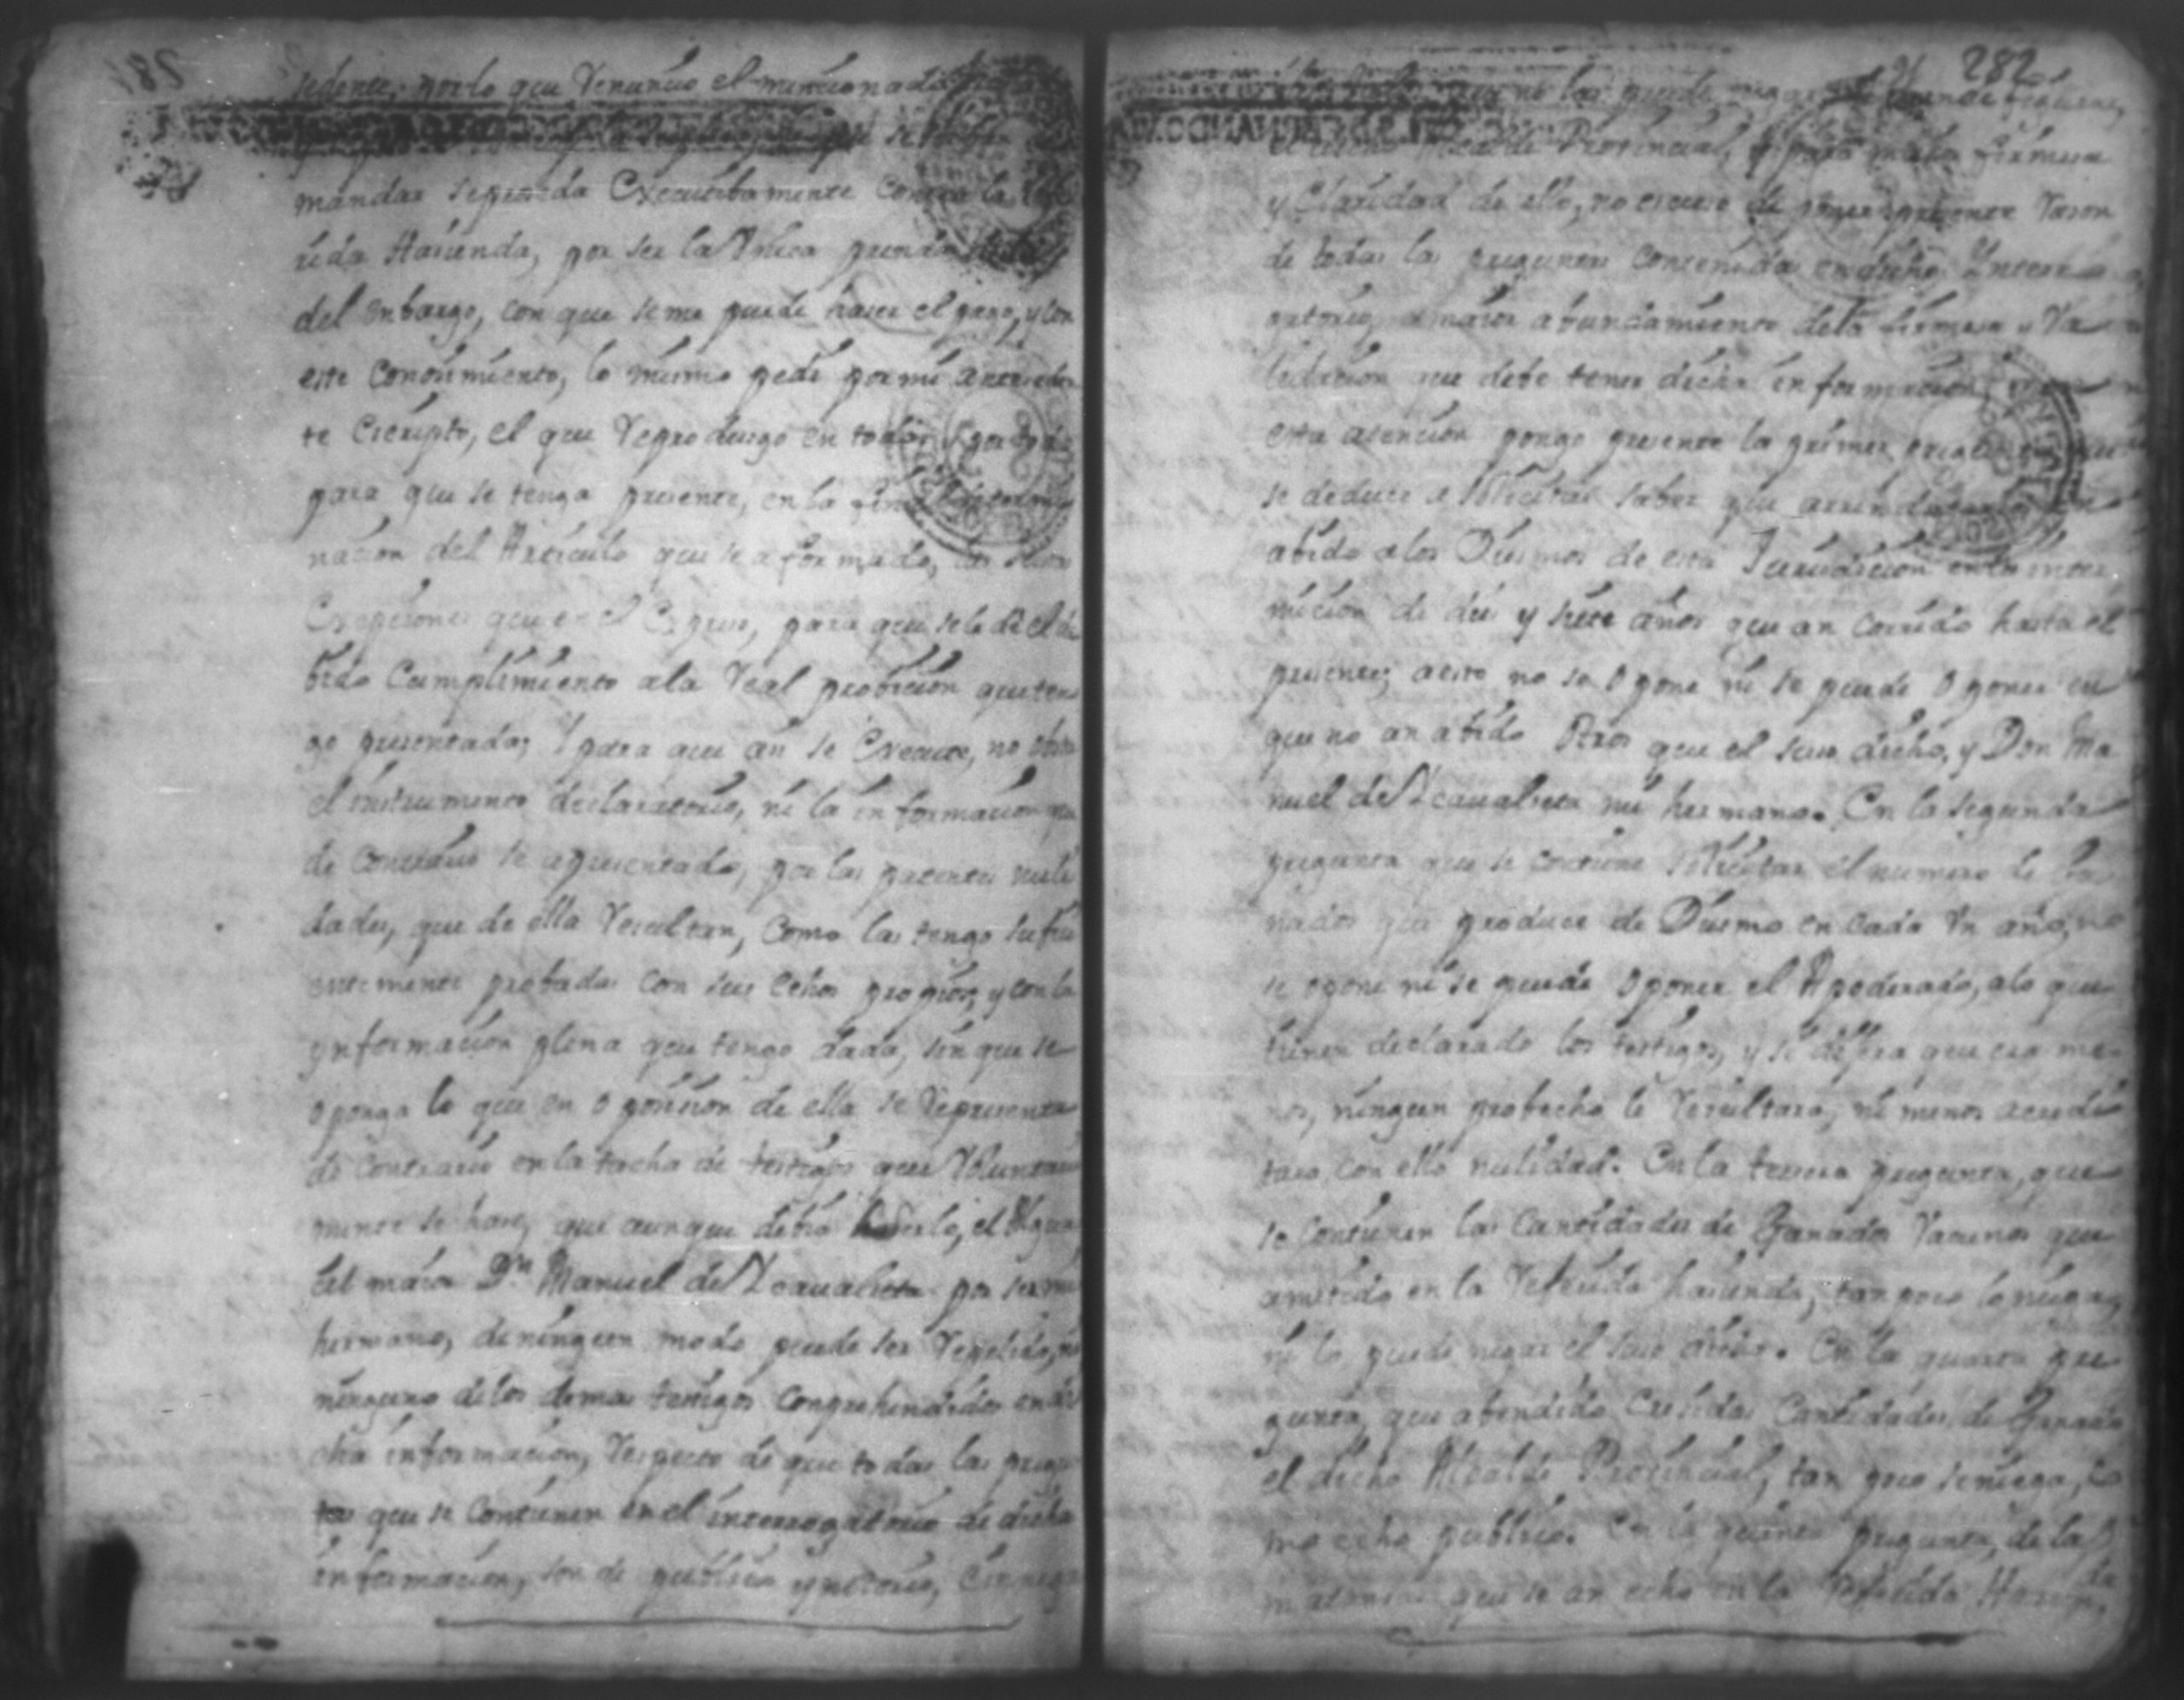 sedente, por lo que Renuncio el mencionado
se
mandar seproceda Executibamente contra la
rida Hacienda, por ser la Unica prenda
del enbargo, con que seme puede hacer el pago, y con
este conosimiento, lo mismo pedi por mi anteceden
te Escripto, el que Reprodusgo en todo y por todo
para que se tenga presente, en la final determi
nacion del Articulo que se a formado, las
Exepciones que en el Expuse, para que sele dé el de
bido Cumplimiento ala Real probicion que ten
go presentada; Y para que an se Execute, no obsta
el instrumento declaratorio, ni la informacion que
de contrario se apresentado, por las patentes nuli
dades, que de ella Resultan, como las tengo sufici
entemente probadas con sus echos propios, y con la
ynformacion plena que tengo dada, sin que se
oponga lo que en oposicion de ella se Representa
de contrario en la tacha de testigos que Voluntaria
mente se hase, que aunque debia haserlo, el Algua
cil maior Dn. Manuel de Zcaualseta por ser mi
hermano, de ningun modo puede ser Repelido, ni
ninguno delos demas testigos conprehendidos en di
cha informacion, Respecto de que todas las pregun
tas que se contienen en el interrogatorio de dicha
informacion, son de publico ynotorio,
282
no las puede negar
el dicho Alcalde Provincial, y para maior firmesa
y Claridad de ello, no escuso de poner presente Rason
de todas las preguntas contenidas en dicho Interro
gatorio, a maior abundamiento dela firmesa y Va
lidacion que debe tener dicha informacion,
esta atencion pongo presente la primer pregunta
se deduce a solicitar saber que arrendatarios
abido alos Diesmos de esta Jurisdicion en la inter
micion de dies y siete años que an corrido hasta el
presente; aesto no se opone ni se puede oponer en
que no an abido otros que el suso dicho, y Don Ma
nuel de Zcaualseta mi hermano. En la segunda
pregunta que se contiene solicitar el numero de Ga
nados que produce de Diesmo en cada Un año, no
se opone ni se puede oponer el Apoderado, alo que
tienen declarado los testigos, y si dijera que era me
nos, ningun probecho le Resultara, ni menos acredi
tara con ello nulidad. En la tercera pregunta, que
se contienen las Cantidades de Ganados Vacunos que
ametido en la Referida hacienda, tan poco lo niega,
ni lo puede negar el suso dicho. En la quarta pre
gunta, que abendido Cresidas Cantidades de Ganado
el dicho Alcalde Provincial, tan poco seniega, co
mo echo publico. En la quinta pregunta, de las
matansas que se an echo en la Referida Hacienda